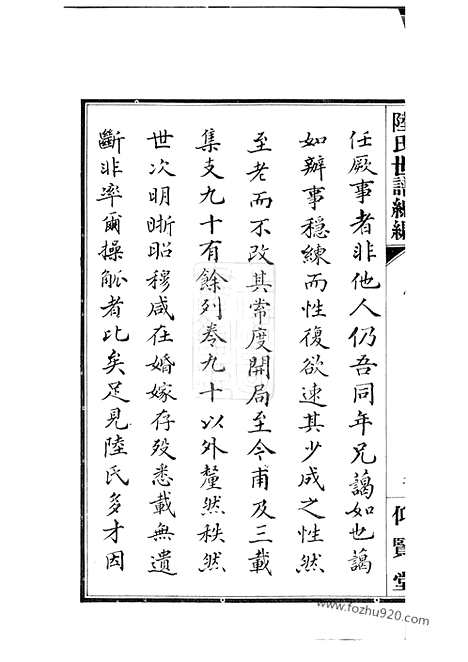 陸氏世譜續編
仰賢堂
任厥事者非他人仍吾同年兄藹如也藹
如辦事穩練而性復欲速其少成之性然
至老而不改其常度開局至今甫及三載
集支九十有餘列卷九十以外釐然秩然
世次明晰昭穆咸在婚嫁存歿悉載無遺
斷非率爾操觚者比矣足見陸氏多才因
www.fozhu920.com